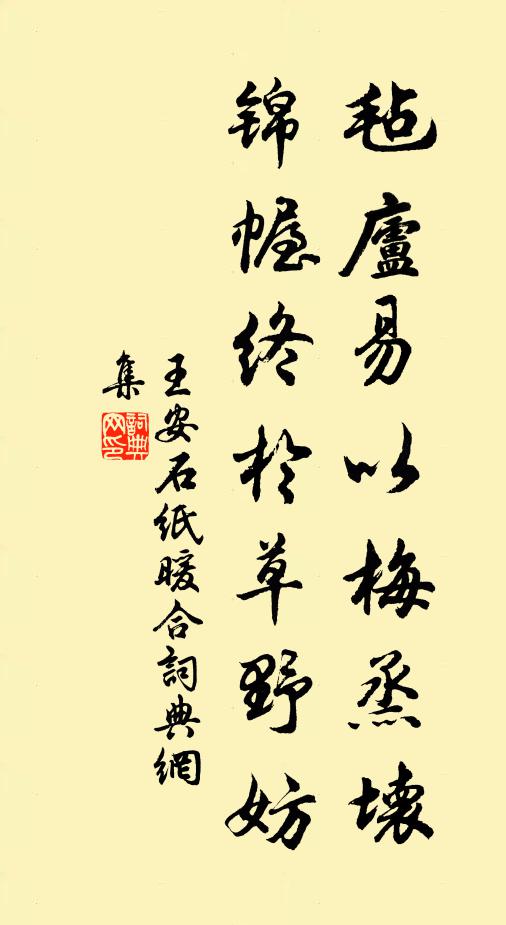 毡廬易以梅烝壞
锦幄終於草野妨
王安石紙暖合詞典網
集
詞典网印